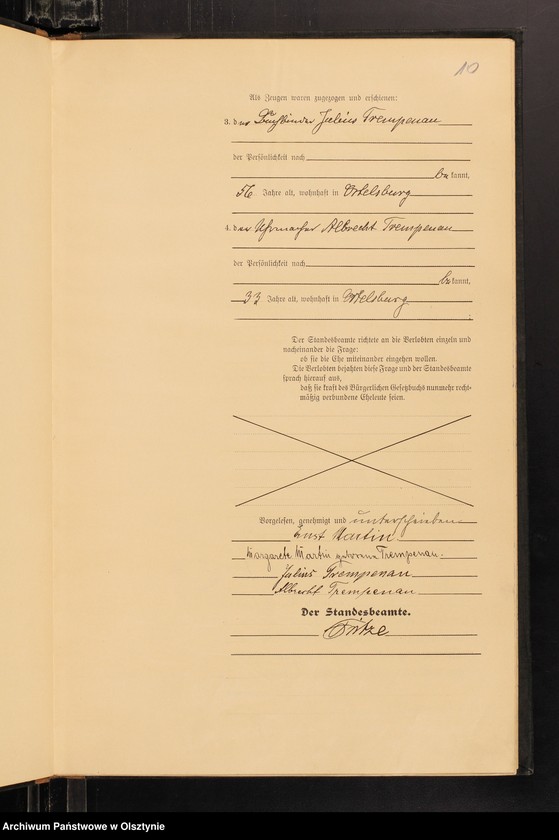 10
Als Zeugen waren zugezogen und erschienen:
3. der Buchbinder Julius Trempenau
der Persönlichkeit nach
bekannt,
56 Jahre alt, wohnhaft in Ortelsburg
4. der Uhrmacher Albrecht Trempenau
der Persönlichkeit nach
bekannt,
33 Jahre alt, wohnhaft in Ortelsburg
;
Der Standesbeamte richtete an die Verlobten einzeln und
nacheinander die Frage:
ob sie die Ehe miteinander eingehen wollen.
Die Verlobten bejahten diese Frage und der Standesbeamte
sprach hierauf aus,
daß sie kraft des Bürgerlichen Gesetzbuchs nunmehr recht-
mäßig verbundene Eheleute seien.
Vorgelesen, genehmigt und unterschrieben
Ernst Martin
Margarete Martin geborene Trempenau.
Julius Trempenau
Albrecht Trempenau
Der Standesbeamte.
Archiwum Państwowe w Olsztynie